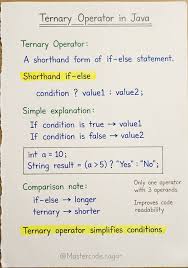 Ternary Operator in Java
Ternary Operator:
A shorthand form of if-else statement.
Shorthand if-else
condition ? value1 : value2;
Simple explanation:
If condition is true → value1
If condition is false → value2
int a = 10;
String result = (a > 5) ? "Yes" : "No";
Comparison note:
if-else → longer
ternary → shorter
Only one operator
with 3 operands
Improves code
readability
Ternary operator simplifies conditions.
@Mastercode.nagar